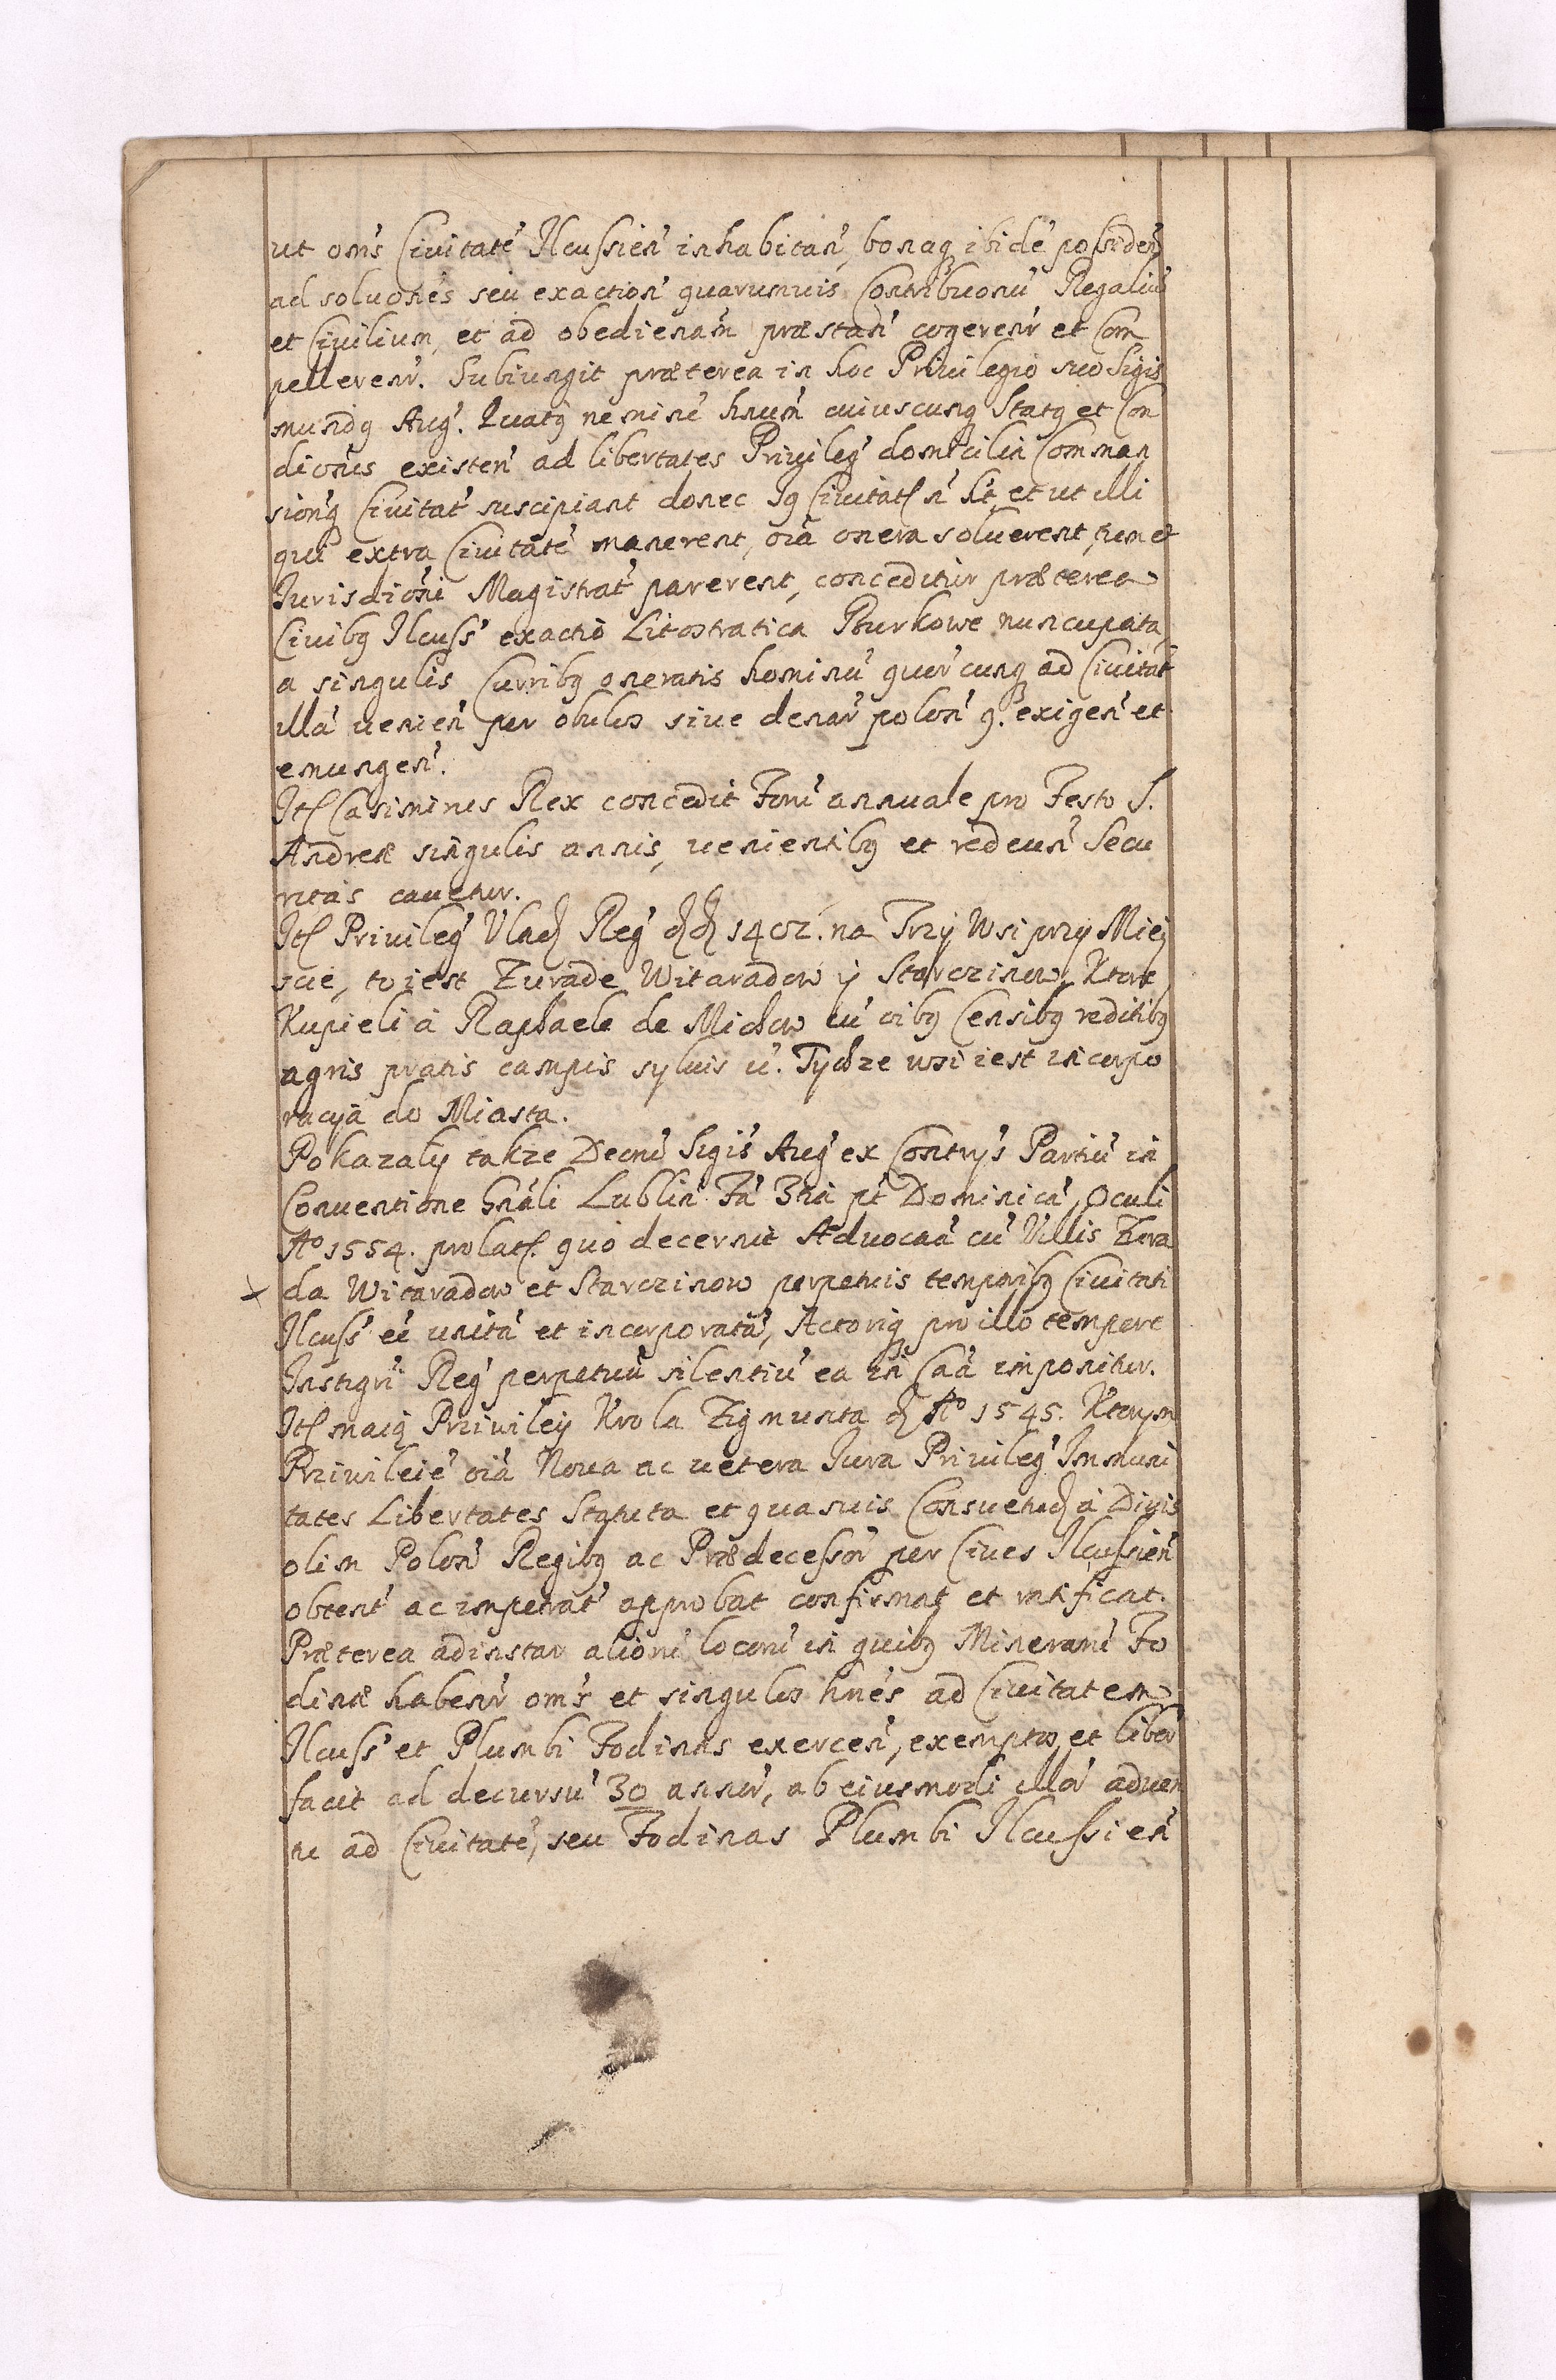 ut om̃s Ciuitatẽ Ilcussien̾ inhabitan̾, bonaq; ibidẽ possiden̾
ad soluõnes seu exaction̾ quarumuis Contribuonũ Regaliũ
et Ciuilium, et ad obedienãm præstan̾ cogerenr̾ et Com
pellerenr̾. Subiungit præterea in hoc Priuilegio suo Sigis
mundꝰ Aug̾. Quatꝰ neminẽ hnum̃ cuiuscunq; Statꝰ et Con
dionis existen̾ ad libertates Priuileg̾ domicilia Comman
sionq; Ciuitat̾ suscipiant donec Iꝰ Ciuitatꝭ n̾ ht̃ et ut illi
qui extra Ciuitatẽ manerent, oĩa onera soluerent,
Iurisdioñi Magistrat̾ parerent, conceditur præterea
Ciuibꝰ Ilcuss̾ exactio Litostratica Bburkowe nuncupata,
a singulis Curribꝰ oneratis hominũ quor̾cunq; ad Ciuitat̾
illã uenien̾ per obulos siue denar̾ polon̾ 9. exigen̾ et
emungen̾.
Itꝭ Casimirus Rex concedit Forũ annuale pro Festo S.
Andreæ singulis annis, uenientibꝰ et redeun̾ Secu
ritas cauetur.
Itꝭ Priuileg̾ Vlad Reg̾ dd 1402. na Trzy Wsi przy Miey
scie, to iest Zurade Witaradow y Starczinow, Ktore
Kupieli à Raphaele de Michow cũ oĩbꝰ Censibꝰ reditibꝰ
agris pratis campis syluis ñ. Tychze wsi iest incorpo
racyia do Miasta.
Pokazaly takze Decrũ Sigis̾ Aug̾ ex Contrys Partiũ in
Conuentione Gñali Lublin̾ Fã 3tia pt̾ Dominicã, Oculi
Aº 1554. prolatꝭ. quo decernit Aduocaã cũ Villis Zura
da Witaradow et Starczinow perpetuis temporibꝰ Ciuitati
Ilcuss̾ eẽ unitã et incorporatã, Actoriq; pro illo tempore
Instigri̾ Reg̾ perpetuũ silentiũ ea in Caã imponitur.
Itꝭ maią Priuiley Krola Zigmunta d Aº 1545. Ktorym
Przivileiẽ oĩa Noua ac uetera Iura Priuileg̾ Immuni
tates Libertates Statuta et quasuis Consuetud à Diuis
olim Polon̾ Regibꝰ ac Prædecessor̾ per Ciues Ilcussien̾
obtent̾ ac impetrat̾ approbat confirmat et ratificat.
Præterea adinstar aliorũ locorũ in quibꝰ Minerarũ Fo
dinæ habenr̾ om̃s et singulos hnẽs ad Ciuitatem
Ilcuss̾ et Plumbi Fodinas exercen̾, exemptos et liber̾
facit ad decursũ 30 annor̾, ab eiusmodi illor̾ aduen
tu ad Ciuitatẽ, seu Fodinas Plumbi Ilcussien̾